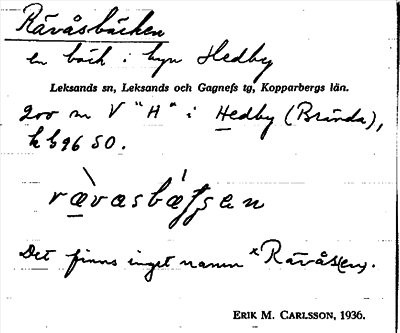 Rävåsbäcken
en bäck i byn Hedby
Leksands sn, Leksands och Gagnefs tg, Kopparbergs län.
200 m V "H" i Hedby (Brända),
kb 96 SO.
Det finns inget namn ˣRävås(en).
ERIK M. CARLSSON, 1936.